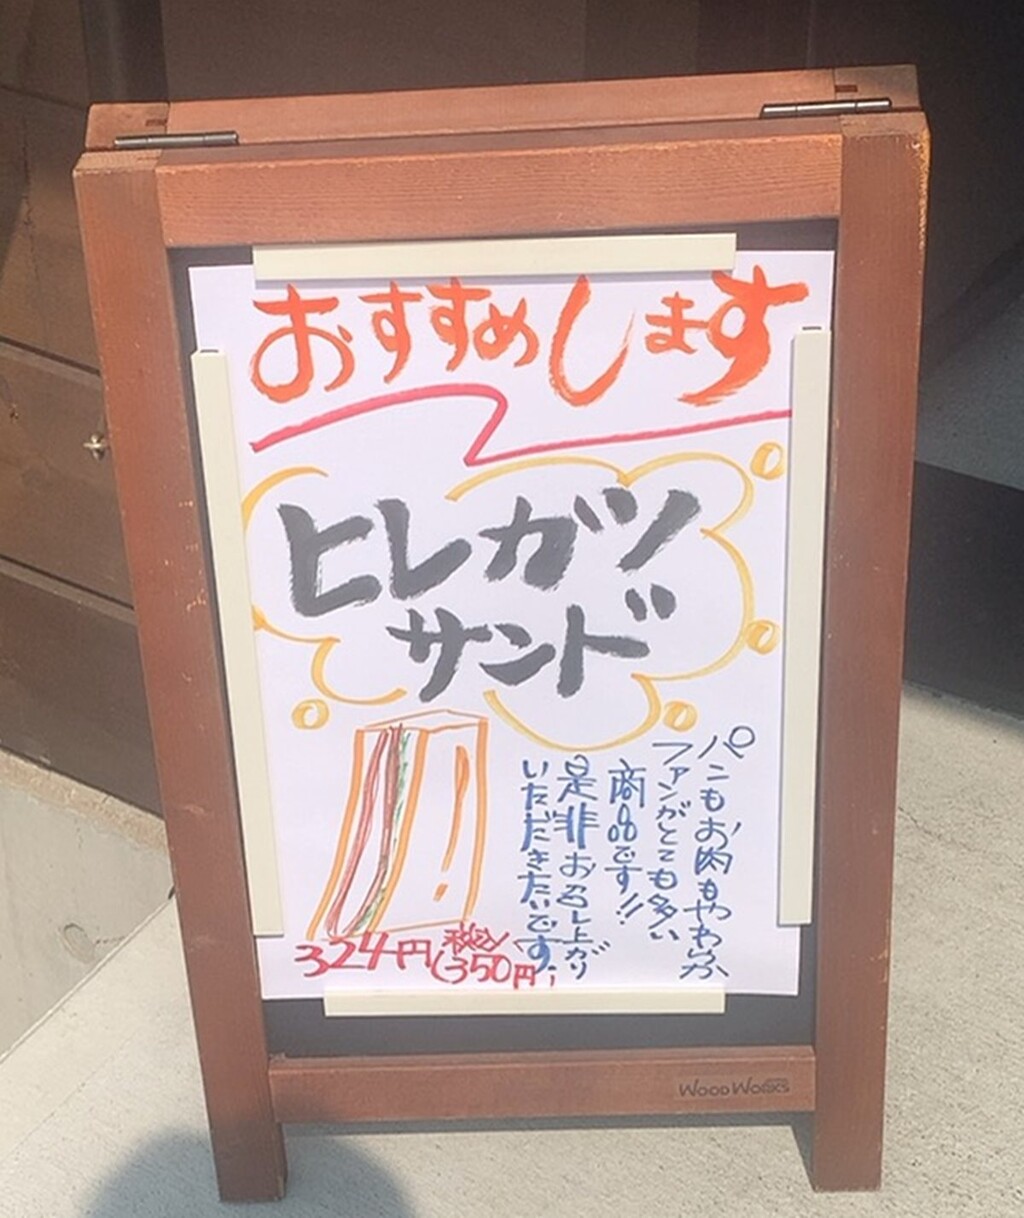 おすすめします
ヒレカツ
サンド
パンもお肉もやわらか
ファンがとても多い
商品です!!
是非お召し上がり
いただきたいです。
324円(税込350円)
WOODWORKS